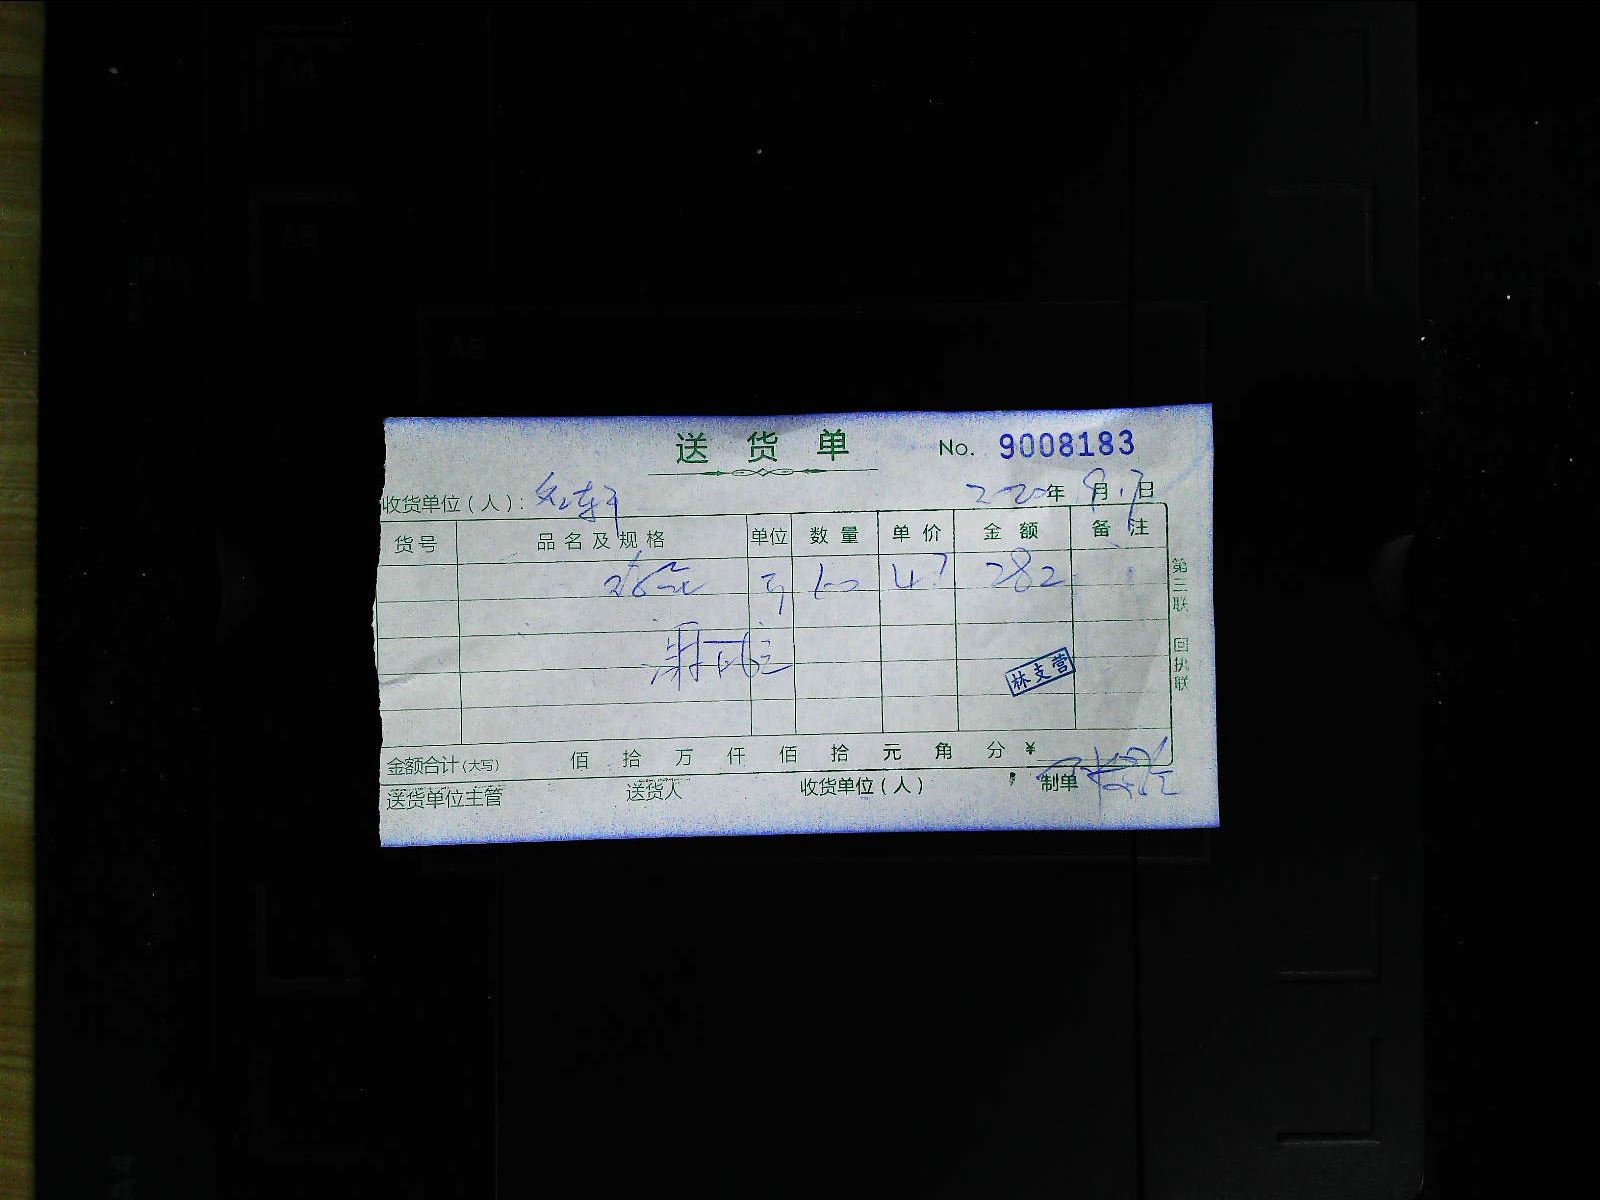 送货单 No. 9008183
收货单位（人）： 年 9月17日
货号 品名及规格 单位 数量 单价 金额 备注
47 282
林支营
第三联 回执联
金额合计(大写) 佰 拾 万 仟 佰 拾 元 角 分 ¥
送货单位主管 送货人 收货单位（人） 制单